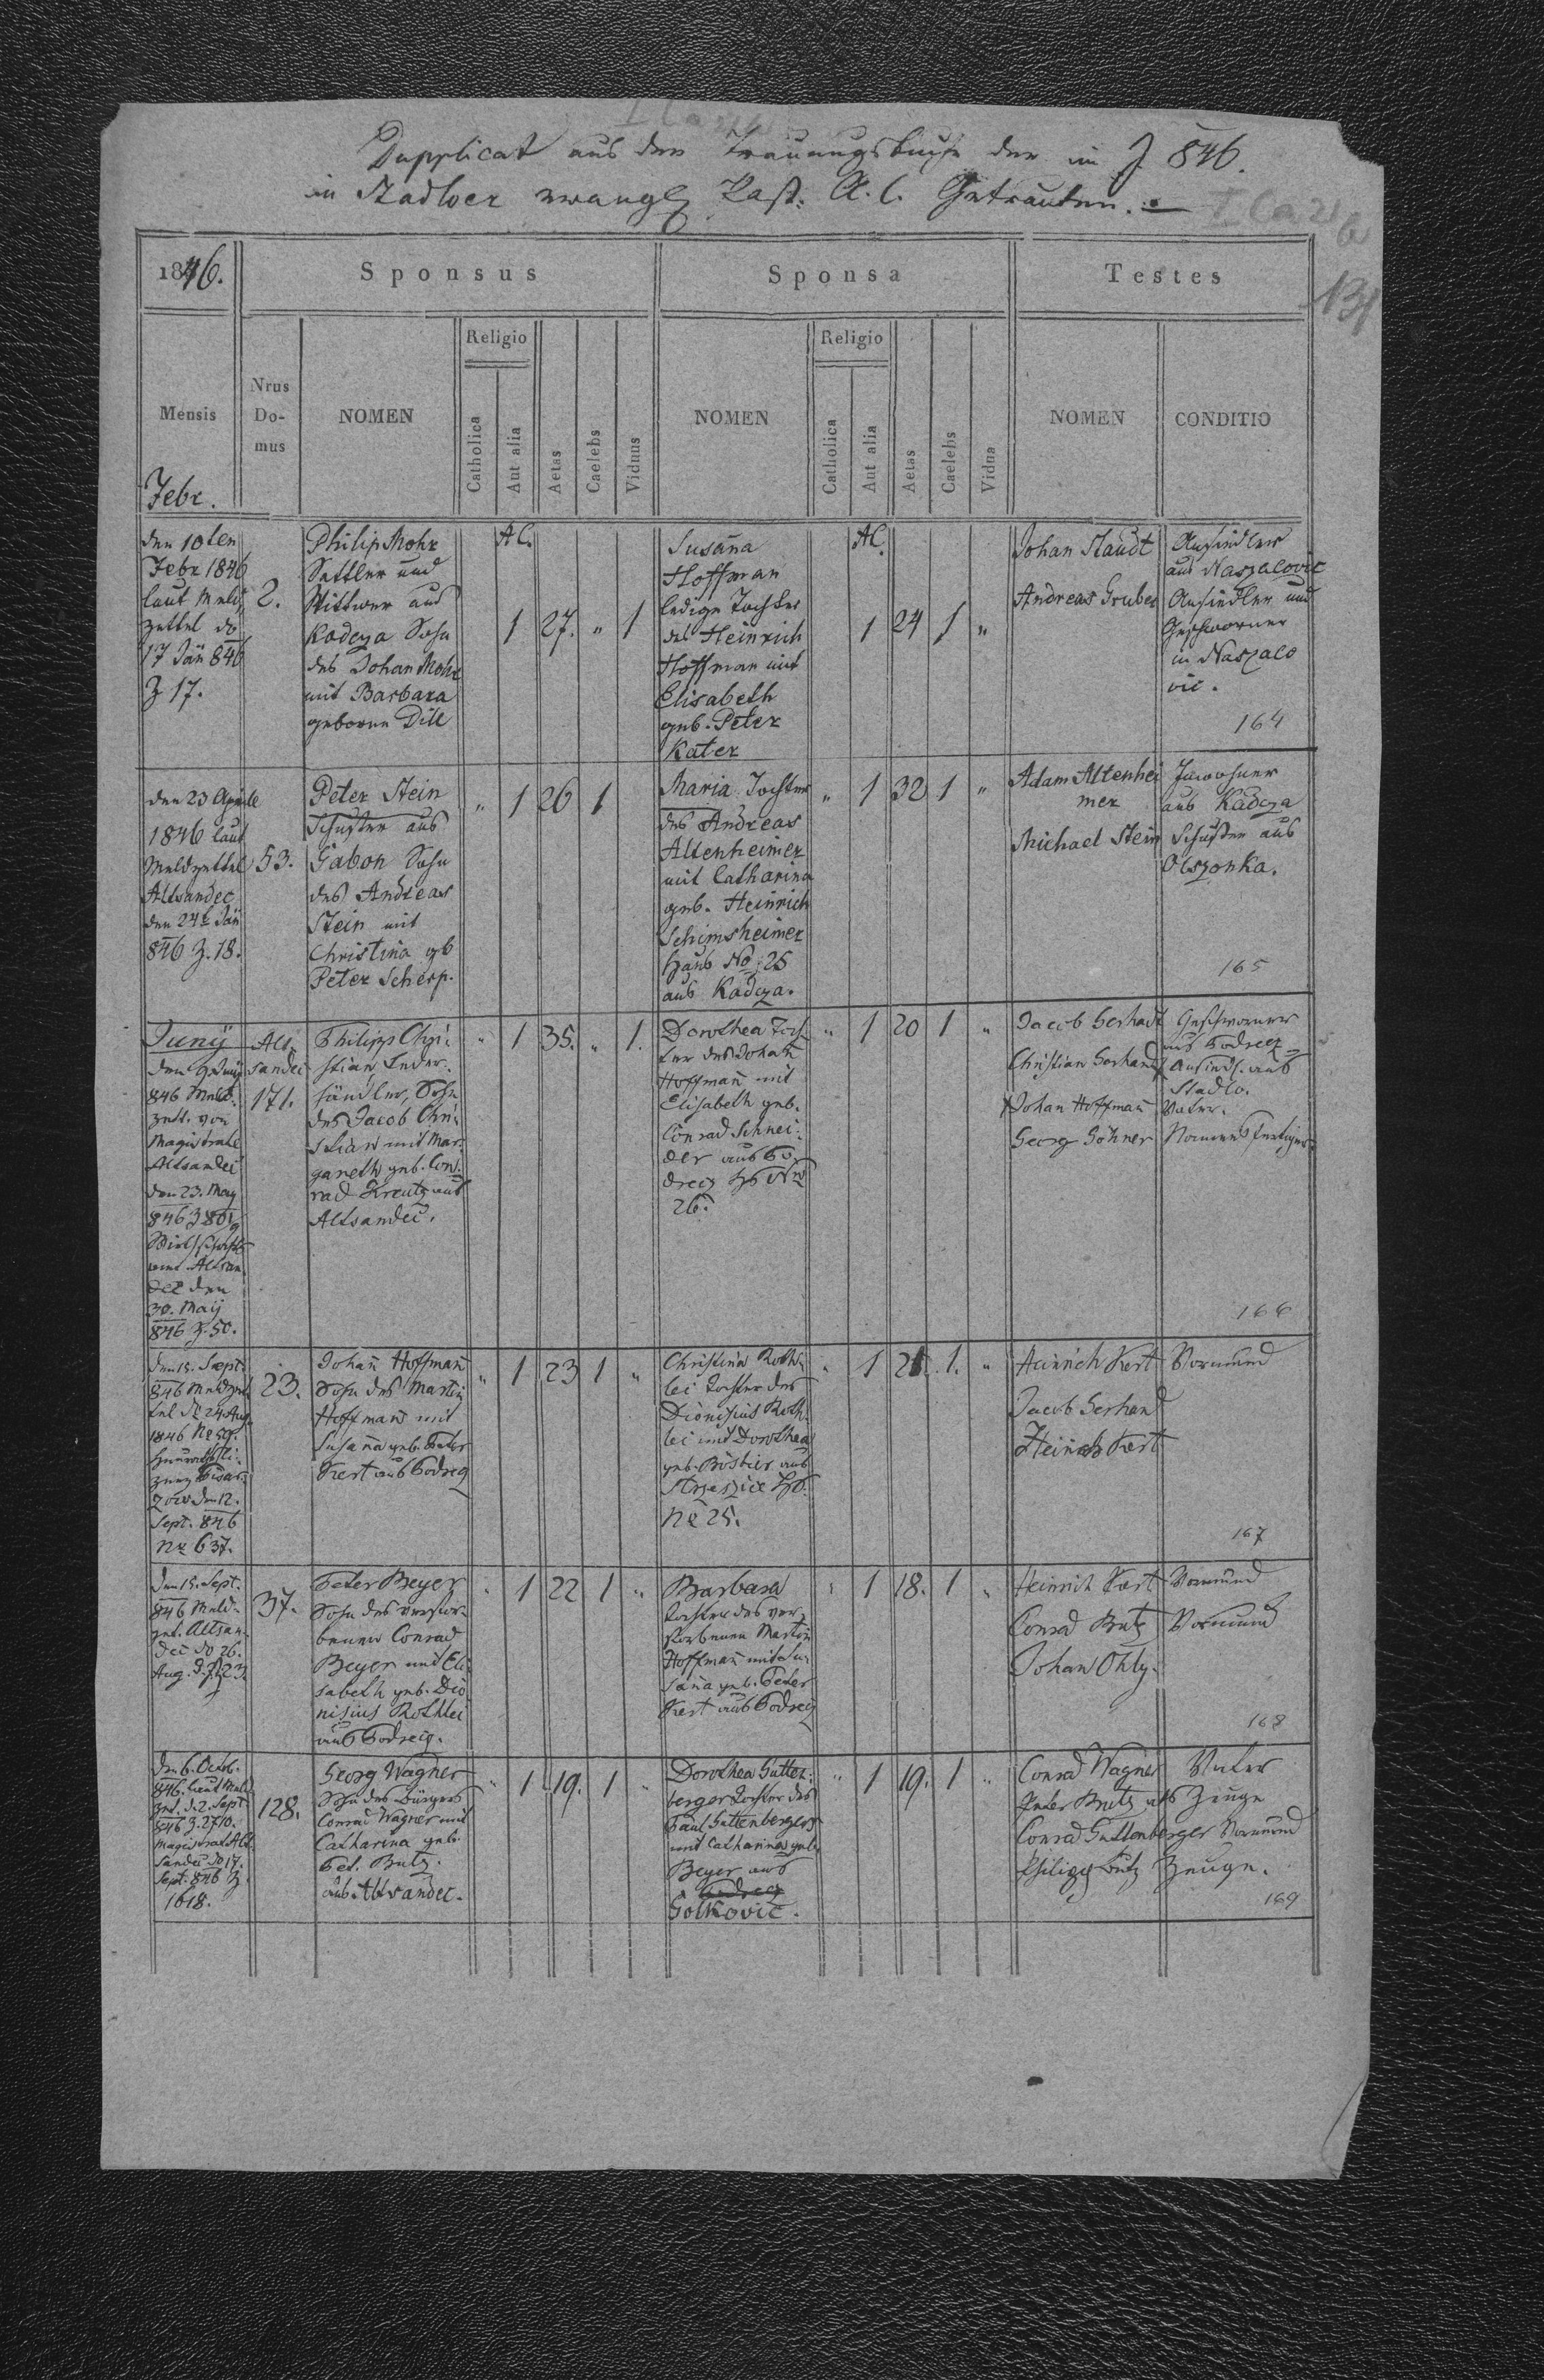 Dupplicat aus dem Trauungsbuche der im J 846.
in Stadloer evangl Past. A. C. Getrauten.
1846.
Sponsus
Sponsa
Testes
Mensis
Nrus
Do-
mus
NOMEN
Religio
Catholica
Aut alia
Aetas
Caelebs
Viduus
NOMEN
Religio
Catholica
Aut alia
Aetas
Caelebs
Vidua
NOMEN
CONDITIO
Febr.
den 10ten
Febr 1846
laut Meld
zettel do
17 Jän 846
Z 17.
2.
Philip Mohr
Sattler und
Wittwer aus
Kadcza Sohn
des Johan Mohr
mit Barbara
geborne Dill
AC.
1 27. " 1
Susana
Hoffman
ledige Tochter
des Heinrich
Hoffman mit
Elisabeth
geb. Peter
Kater
AC.
1 24 1 "
Johan Staudt
Andreas Gruber
Ansiedler
aus Naszalovic
Ansiedler und
Geschworner
in Naszalo
vic.
164
den 23 Aprile
1846 laut
Meldzettel
Altsandec
den 24t Jän
846 Z. 18.
53.
Peter Stein
Schuster aus
Gabon Sohn
des Andreas
Stein mit
Christina gb
Peter Scherp.
" 1 26 1
Maria Tochter
des Andreas
Altenheimer
mit Catharina
geb. Heinrich
Schimsheimer
Haus No 25
aus Kadcza.
" 1 32 1 "
Adam Altenhei
mer
Michael Stein
Inwohner
aus Kadcza
Schuster aus
Olszonka.
165
Juny
846 Meld-
zett. von
Magistrate
Altsandec
den 23. May
846 Z 801
Altsan
dec den
30. May
846 Z. 50.
Alt-
sandec
171.
Philipp Chri-
stian Leder-
händler, Sohn
des Jacob Chri-
stian mit Mar-
gareth geb. Con-
rad Kreutz aus
Altsandec.
" 1 35. " 1.
Dorothea Toch
ter des Johan
Hoffman mit
Elisabeth geb.
Conrad Schnei-
der aus Po-
drecz Hs Nr
26.
" 1 20 1 "
Jacob Gerhardt
Christian Gerhard
Johan Hoffman
Georg Göhner
Geschworner
aus Podrecz
Ansiedl. aus
Stadlo.
Vater.
Namensfertiger
166
den 15. Sept.
846 Meldzet-
tel do 24 Aug
1846 No 59.
den 12.
Sept. 846
No 637.
23.
Johan Hoffman
Sohn des Martin
Hoffman mit
Susana geb. Peter
Kert aus Podrecz
" 1 23 1 "
Christina Roth-
lei Tochter des
Dionisius Roth-
lei mit Dorothea
geb. aus
Strzeszice Hs.
No 25.
" 1 1. "
Heinrich Kert
Jacob Gerhard
Heinrich Kert
Vormund
167
den 15. Sept.
846 Meld-
zet. Altsan-
dec do 26.
Aug. d. J. Z 23.
37.
Peter Beyer
Sohn des verstor-
benen Conrad
Beyer mit Eli-
sabeth geb. Dio-
nisius Rothlei
aus Podrecz.
" 1 22 1 "
Barbara
Tochter des ver-
storbenen Martin
Hoffman mit Su-
sana geb. Peter
Kert aus Podrecz
" 1 18. 1 "
Heinrich Kert
Conrad Butz
Johan Ohly.
Vormund
Vormund
168
den 6. Octob.
846. laut Meld-
zet. d. 2. Sept
846 Z. 2710.
Magistrat Alt-
sandec do 17.
Sept. 846 Z.
1618.
128.
Georg Wagner
Sohn des Bürgers
Conrad Wagner mit
Catharina geb.
Pet. Butz.
aus Altsandec.
" 1 19. 1 "
Dorothea Gutten-
berger Tochter des
Paul Guttenbergers
mit Catharina geb.
Beyer aus
Golkovic.
" 1 19. 1 "
Conrad Wagner Vater
Peter Butz als Zeuge
Conrad Guttenberger Vormund
Philipp Butz Zeuge.
169